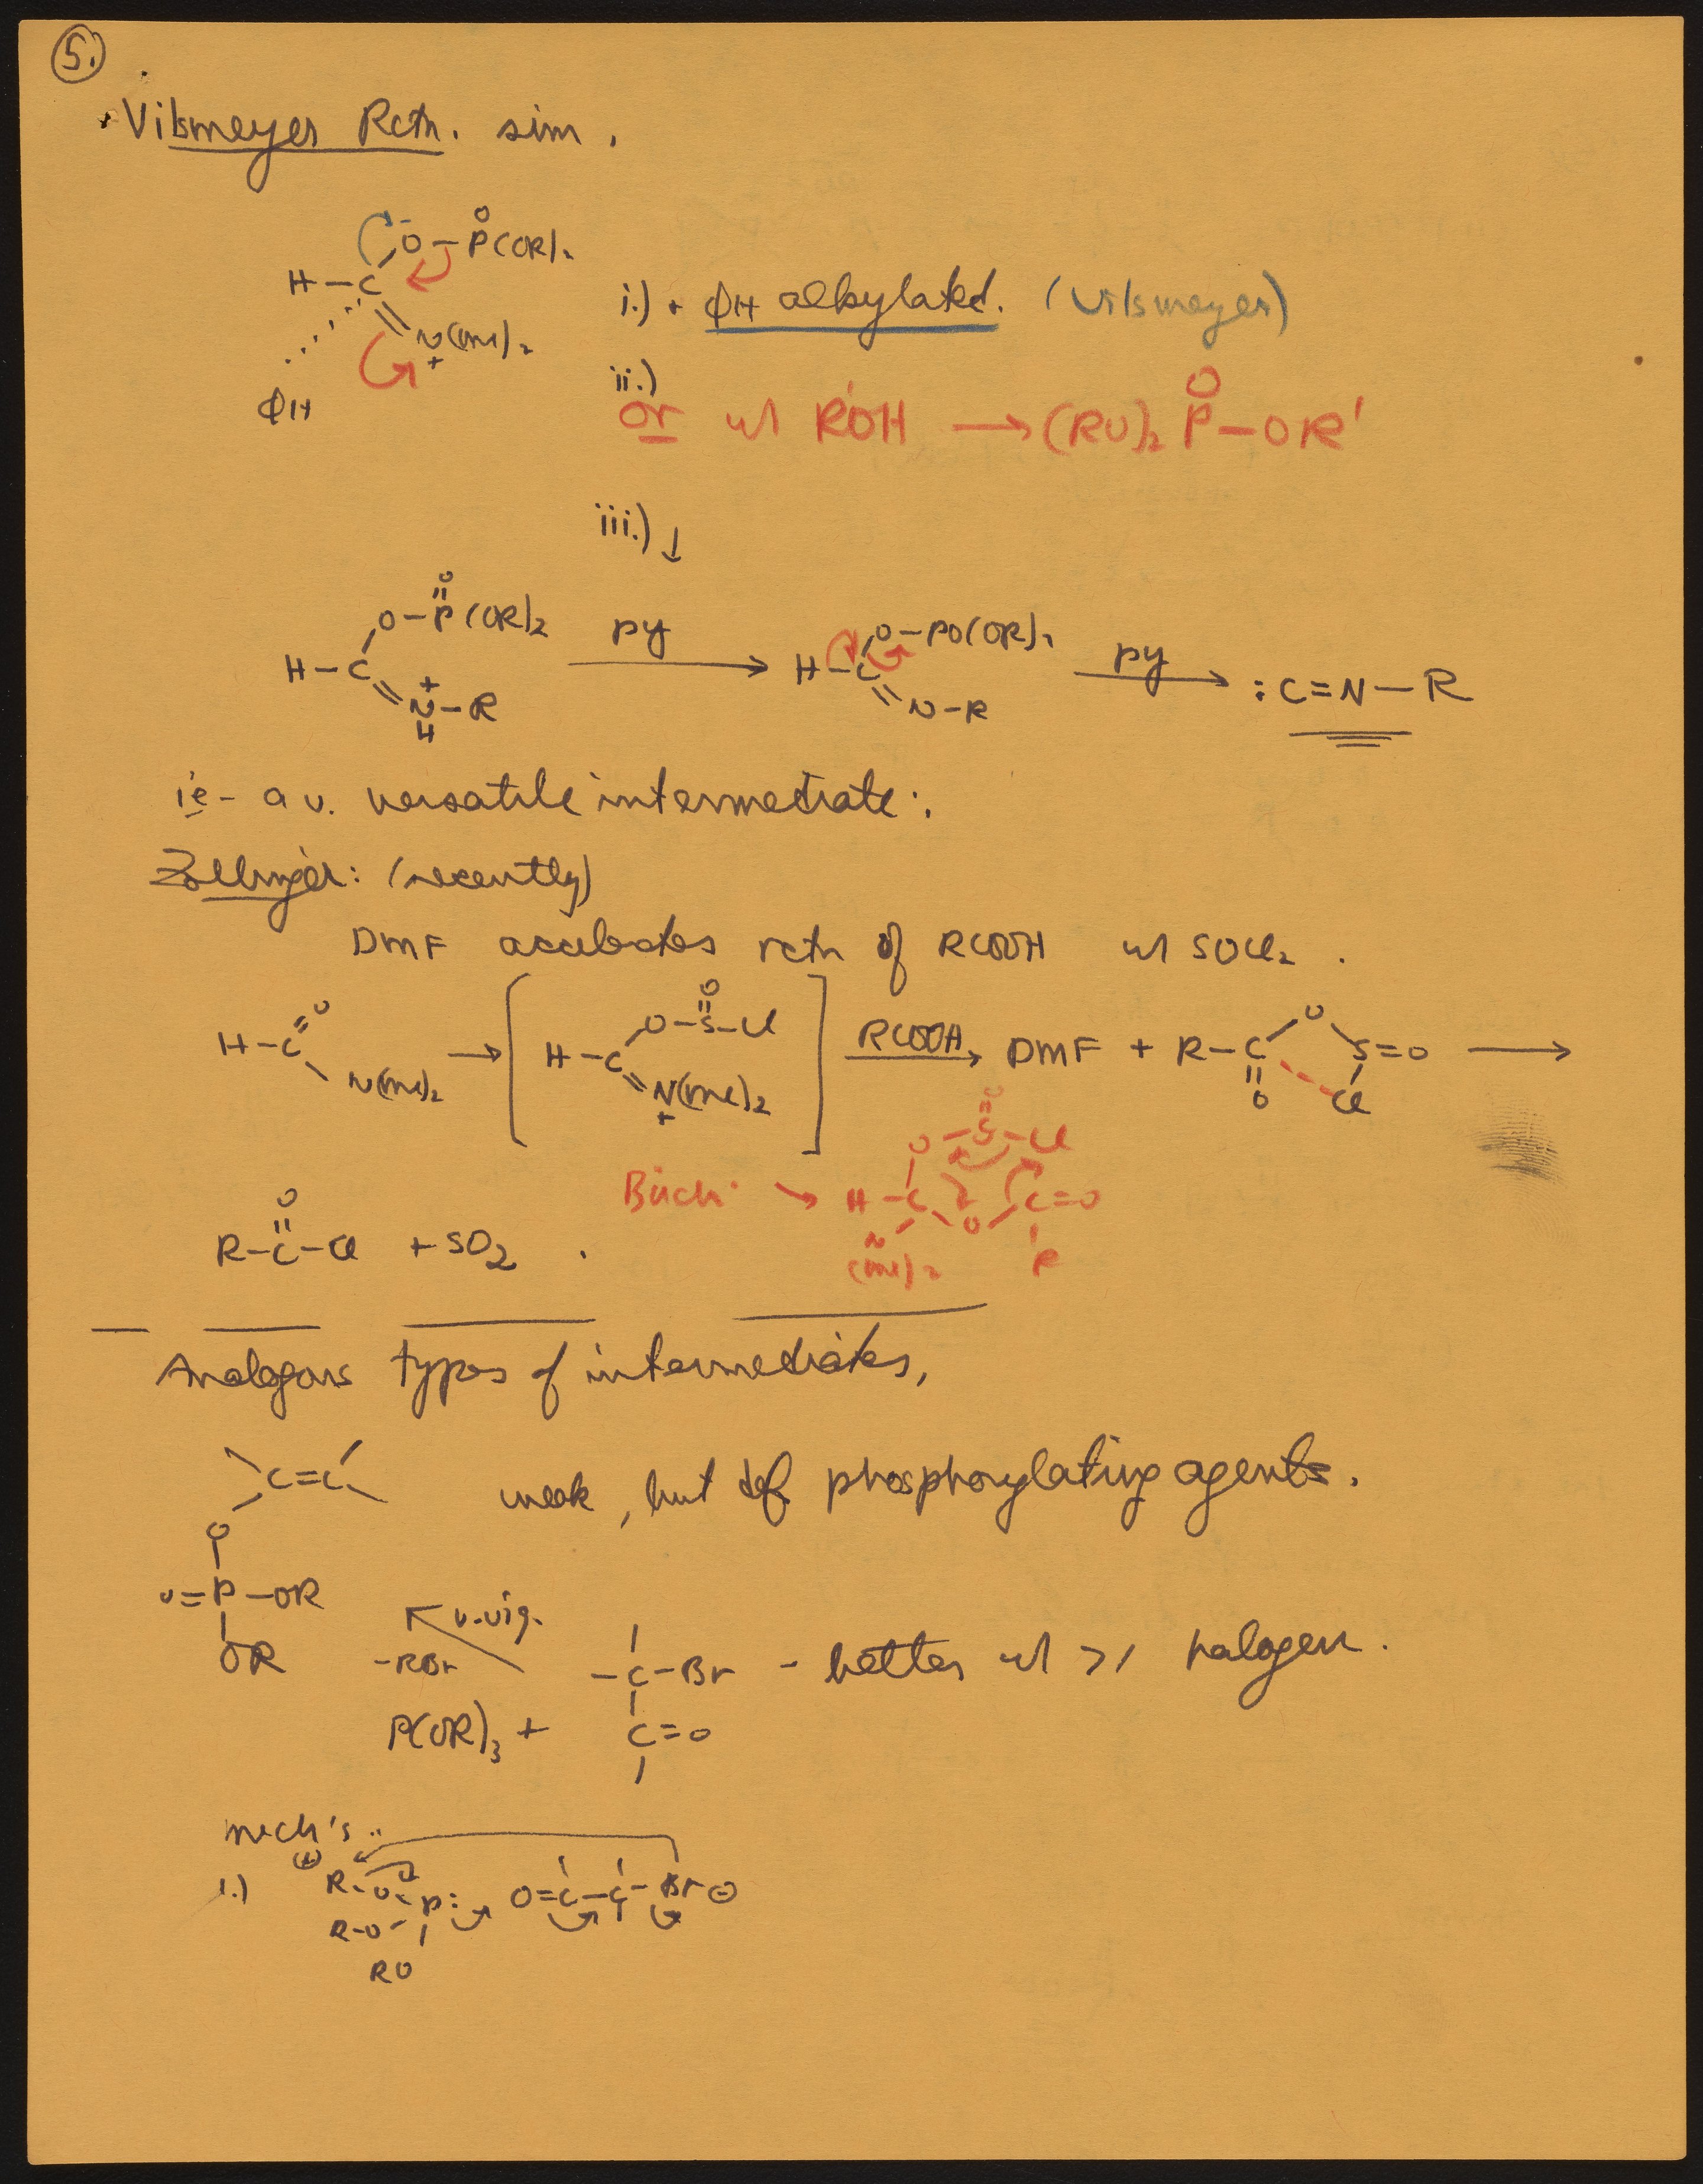 5.
Vilsmeyer Rctn. sim.
O
O - P(OR)2
H - C
N(Me)2
+
ΦH
i.) + ΦH alkylated. (Vilsmeyer)
ii.)
or w/ R'OH → (RO)2 P - OR'
O
iii.) ↓
O
O - P(OR)2
H - C
+
N - R
H
py
O - PO(OR)2
H - C
N - R
py
:C=N-R
ie - a v. versatile intermediate:
Zollinger: (recently)
DMF accelerates rctn of RCOOH w/ SOCl2.
O
H - C
N(Me)2
→
O
O - S - Cl
H - C
N(Me)2
+
RCOOH
DMF + R - C
O
O
S=O
Cl
→
Büchi → H - C
O - S - Cl
O
O
C=O
N
(Me)2
R
O
R - C - Cl + SO2.
Analogous types of intermediates,
C=C
weak, but def phosphorylating agents.
O
O=P-OR
OR
v. vig.
-RBr
-C-Br - better w/ >1 halogen.
P(OR)3 +
C=O
mech's:
1.)
(+)
R-O-P:
R-O
RO
O=C-C-Br ⊖